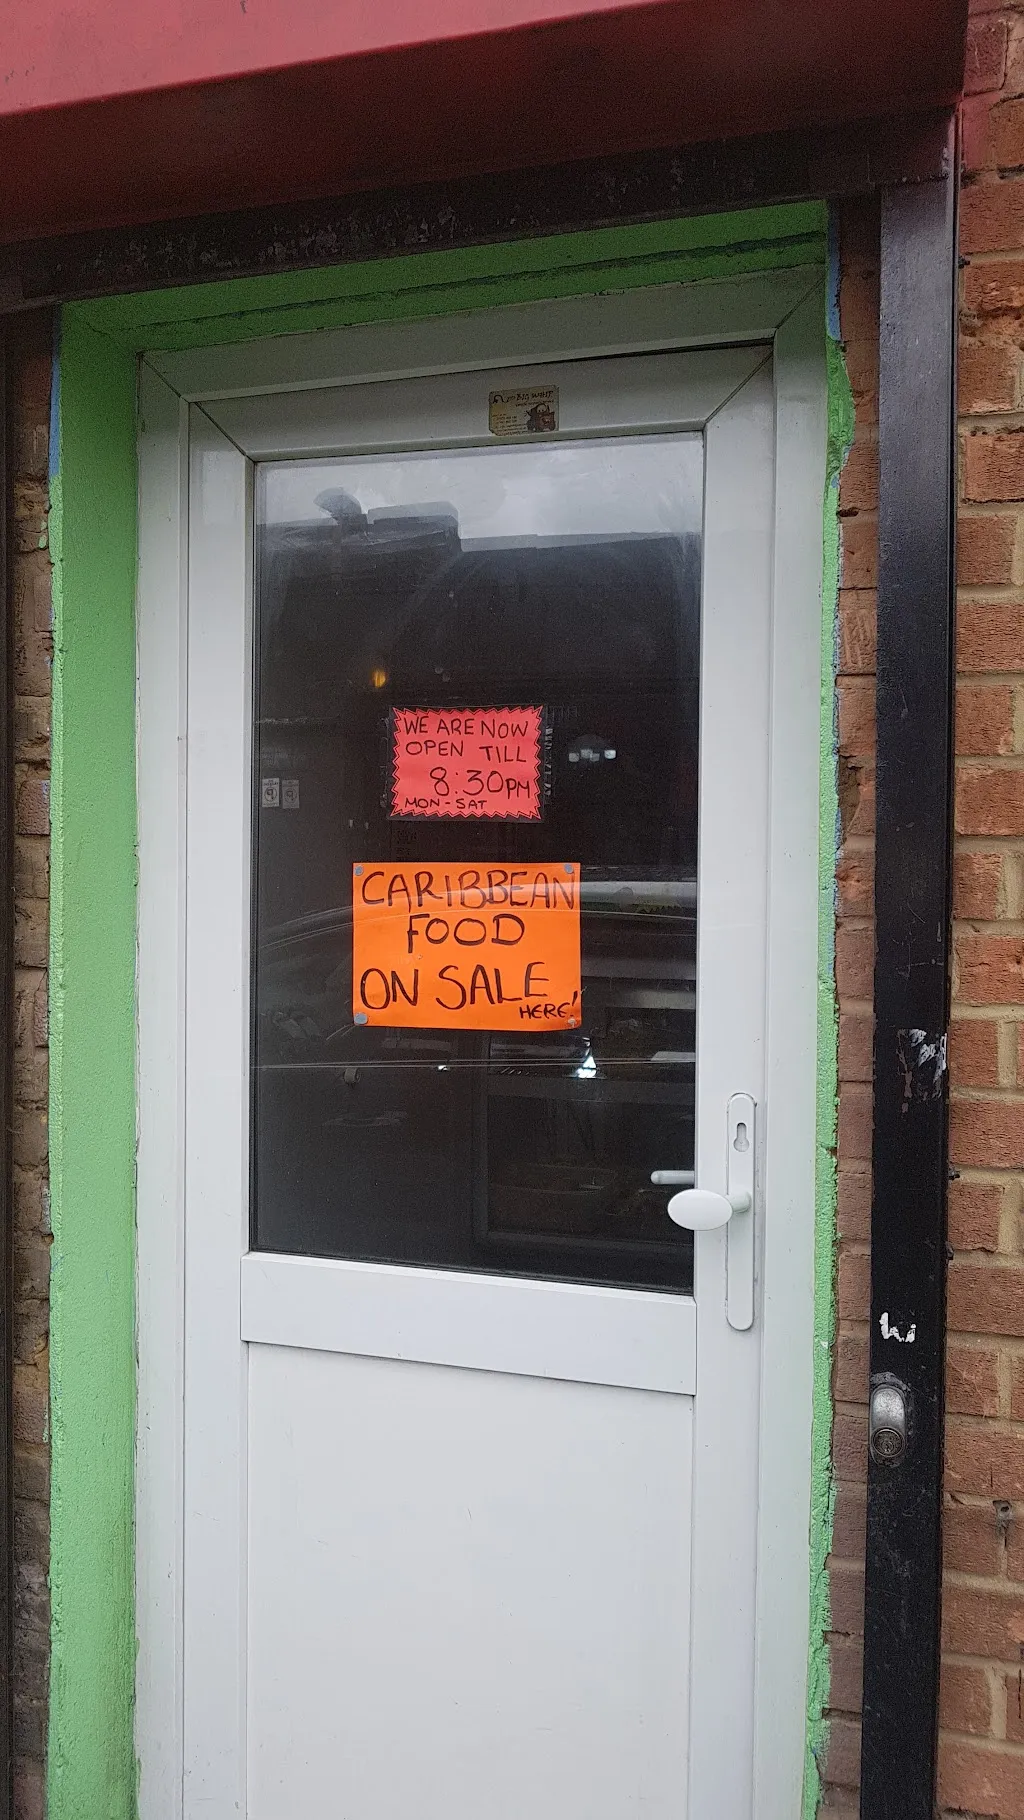 WE ARE NOW
OPEN TILL
8:30PM
MON - SAT
CARIBBEAN
FOOD
ON SALE
HERE!